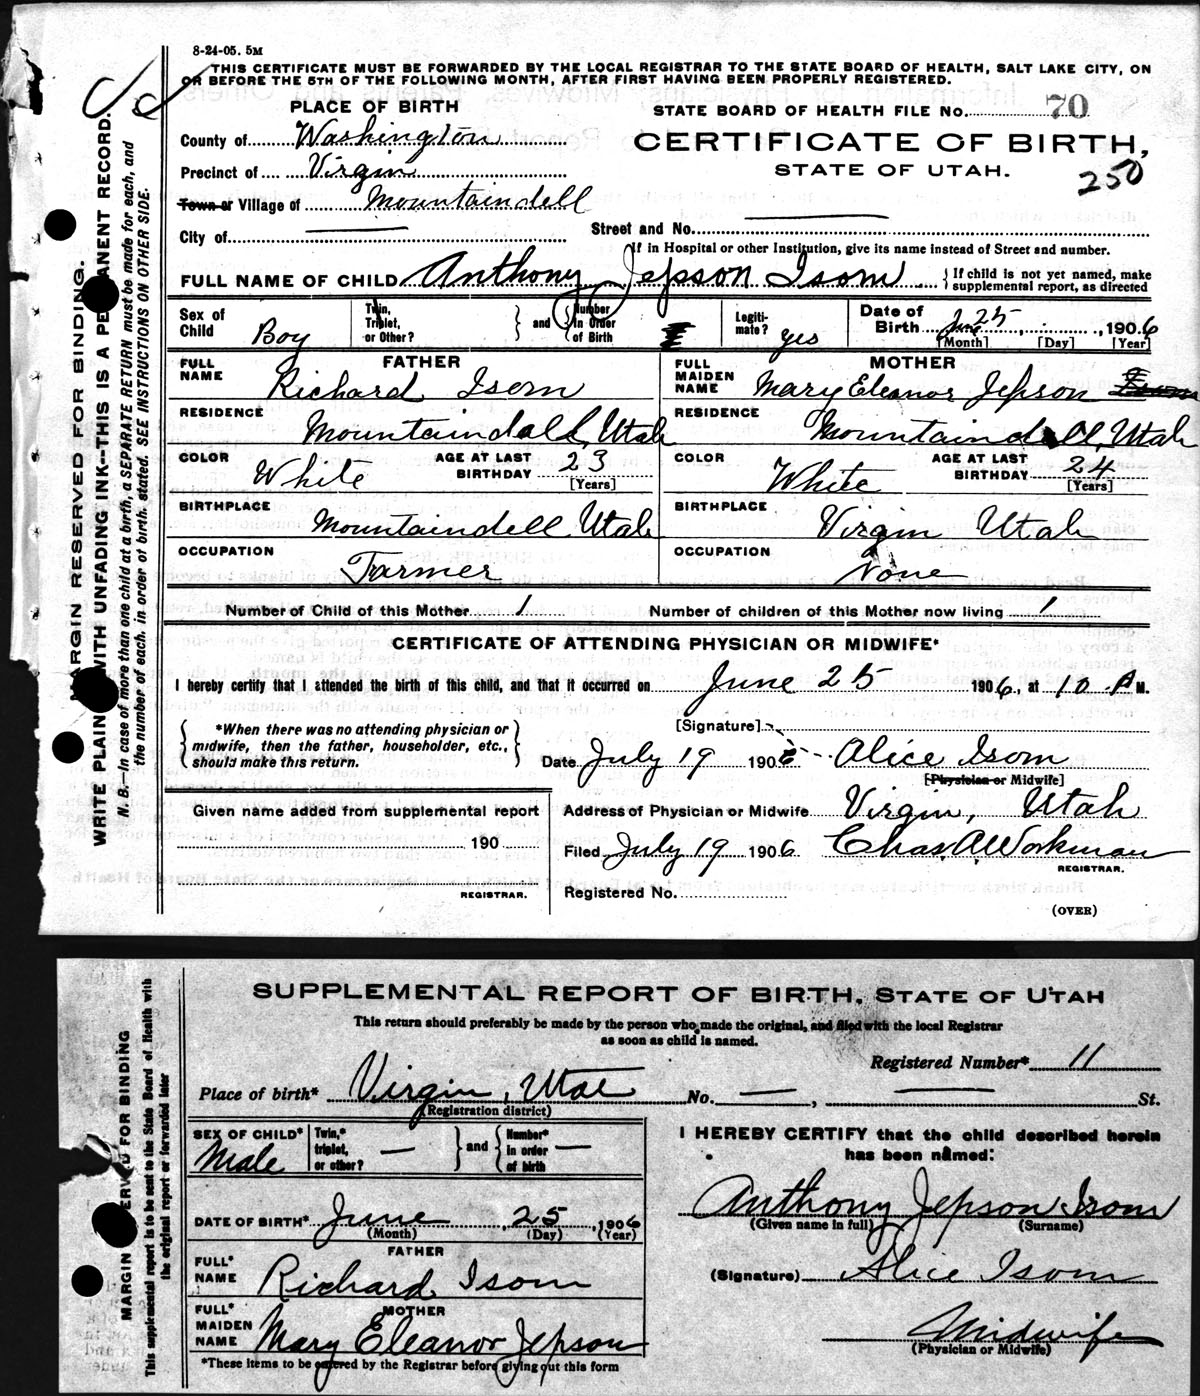 8-24-05. 5M
THIS CERTIFICATE MUST BE FORWARDED BY THE LOCAL REGISTRAR TO THE STATE BOARD OF HEALTH, SALT LAKE CITY, ON
OR BEFORE THE 5TH OF THE FOLLOWING MONTH, AFTER FIRST HAVING BEEN PROPERLY REGISTERED.
PLACE OF BIRTH
STATE BOARD OF HEALTH FILE No. 70
County of Washington
CERTIFICATE OF BIRTH,
Precinct of Virgin
STATE OF UTAH.
250
Town or Village of Mountaindell
City of
Street and No.
If in Hospital or other Institution, give its name instead of Street and number.
FULL NAME OF CHILD Anthony Jepson Isom
If child is not yet named, make
supplemental report, as directed
Sex of Child Boy
Twin, Triplet, or Other?
and
Number in Order of Birth
Legitimate? yes
Date of Birth June 25, 1906
[Month] [Day] [Year]
FATHER
FULL NAME Richard Isom
RESIDENCE Mountaindell, Utah
COLOR White
AGE AT LAST BIRTHDAY 23
[Years]
BIRTHPLACE Mountaindell Utah
OCCUPATION Farmer
MOTHER
FULL MAIDEN NAME Mary Eleanor Jepson Isom
RESIDENCE Mountaindell, Utah
COLOR White
AGE AT LAST BIRTHDAY 24
[Years]
BIRTHPLACE Virgin Utah
OCCUPATION None
Number of Child of this Mother 1
Number of children of this Mother now living 1
CERTIFICATE OF ATTENDING PHYSICIAN OR MIDWIFE*
I hereby certify that I attended the birth of this child, and that it occurred on June 25 1906, at 10 P M.
*When there was no attending physician or
midwife, then the father, householder, etc.,
should make this return.
[Signature]
Date July 19 1906 Alice Isom
[Physician or Midwife]
Given name added from supplemental report
190
REGISTRAR.
Address of Physician or Midwife Virgin, Utah
Filed July 19 1906 Chas. A Workman
REGISTRAR.
Registered No.
(OVER)
MARGIN RESERVED FOR BINDING.
WRITE PLAINLY WITH UNFADING INK--THIS IS A PERMANENT RECORD.
N. B.—In case of more than one child at a birth, a SEPARATE RETURN must be made for each, and
the number of each, in order of birth, stated. SEE INSTRUCTIONS ON OTHER SIDE.
SUPPLEMENTAL REPORT OF BIRTH, STATE OF UTAH
This return should preferably be made by the person who made the original, and filed with the local Registrar
as soon as child is named.
Registered Number* 11
Place of birth* Virgin, Utah No. , St.
(Registration district)
SEX OF CHILD* Male
Twin,* triplet, or other?
and
Number* in order of birth
DATE OF BIRTH* June, 25, 1906
(Month) (Day) (Year)
FATHER
FULL* NAME Richard Isom
MOTHER
FULL* MAIDEN NAME Mary Eleanor Jepson
*These items to be entered by the Registrar before giving out this form
I HEREBY CERTIFY that the child described herein
has been named:
Anthony Jepson Isom
(Given name in full) (Surname)
(Signature) Alice Isom
Midwife
(Physician or Midwife)
MARGIN RESERVED FOR BINDING
This supplemental report is to be sent to the State Board of Health with
the original report or forwarded later